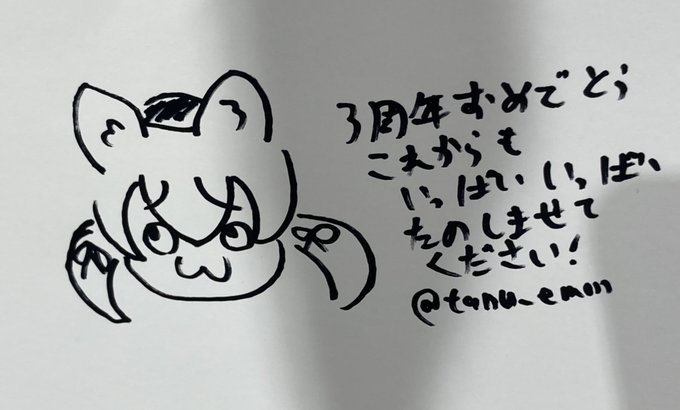 3周年おめでとう
これからも
いっぱいいっぱい
たのしませて
ください!
@tanu_emon